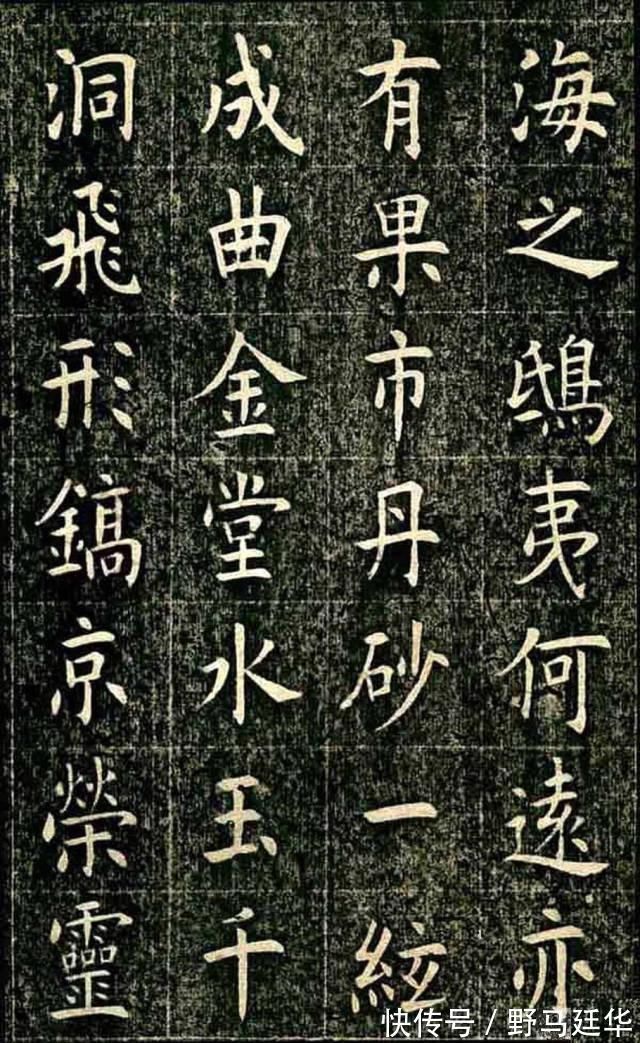 海之鴟夷何遠亦
有果市丹砂一絃
成曲金堂水玉千
洞飛形鎬京榮靈
快传号 / 野马廷华